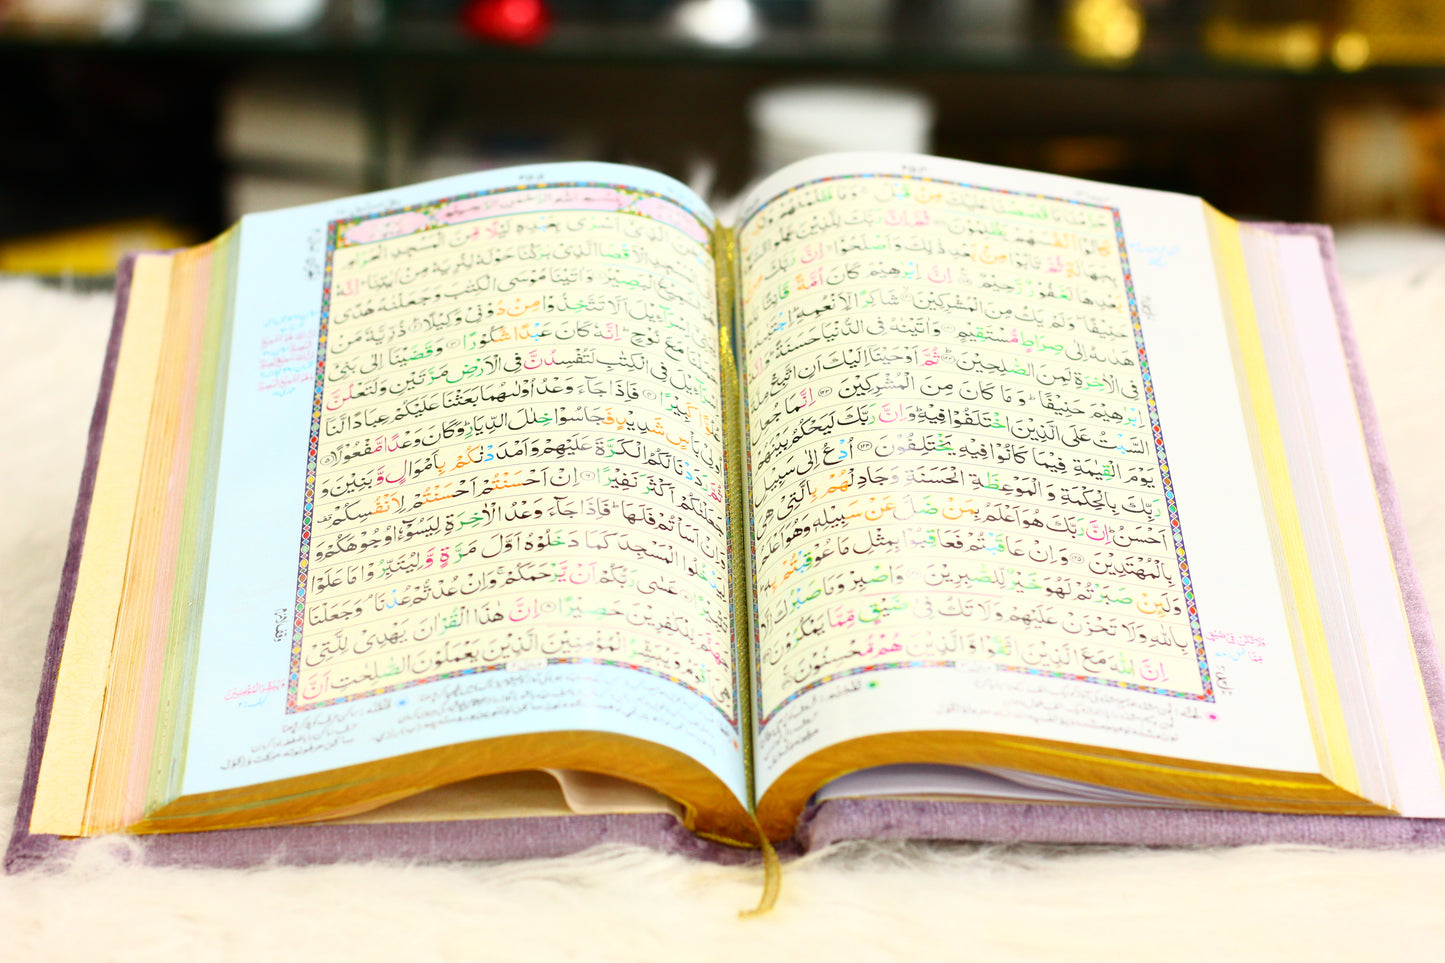 حَرَّمْنَا مَا قَصَصْنَا عَلَيْكَ مِنْ قَبْلُ ۚ وَمَا ظَلَمْنٰهُمْ وَلٰكِنْ
كَانُوْۤا اَنْفُسَهُمْ يَظْلِمُوْنَ ثُمَّ اِنَّ رَبَّكَ لِلَّذِيْنَ عَمِلُوا السُّوْٓءَ
بِجَهَالَةٍ ثُمَّ تَابُوْا مِنْۢ بَعْدِ ذٰلِكَ وَاَصْلَحُوْۤا اِنَّ رَبَّكَ مِنْۢ
بَعْدِهَا لَغَفُوْرٌ رَّحِيْمٌ اِنَّ اِبْرٰهِيْمَ كَانَ اُمَّةً قَانِتًا لِّلّٰهِ
حَنِيْفًا ۭ وَلَمْ يَكُ مِنَ الْمُشْرِكِيْنَ شَاكِرًا لِّاَنْعُمِهٖ ۭ اِجْتَبٰىهُ وَ
هَدٰىهُ اِلٰى صِرَاطٍ مُّسْتَقِيْمٍ وَاٰتَيْنٰهُ فِى الدُّنْيَا حَسَنَةً ۭ وَاِنَّهٗ
فِى الْاٰخِرَةِ لَمِنَ الصّٰلِحِيْنَ ثُمَّ اَوْحَيْنَاۤ اِلَيْكَ اَنِ اتَّبِعْ مِلَّةَ
اِبْرٰهِيْمَ حَنِيْفًا ۭ وَمَا كَانَ مِنَ الْمُشْرِكِيْنَ ﴿۱۲۳﴾ اِنَّمَا جُعِلَ
السَّبْتُ عَلَى الَّذِيْنَ اخْتَلَفُوْا فِيْهِ ۭ وَاِنَّ رَبَّكَ لَيَحْكُمُ بَيْنَهُمْ
يَوْمَ الْقِيٰمَةِ فِيْمَا كَانُوْا فِيْهِ يَخْتَلِفُوْنَ ﴿۱۲۴﴾ اُدْعُ اِلٰى سَبِيْلِ
رَبِّكَ بِالْحِكْمَةِ وَالْمَوْعِظَةِ الْحَسَنَةِ وَجَادِلْهُمْ بِالَّتِىْ هِىَ
اَحْسَنُ ۭ اِنَّ رَبَّكَ هُوَ اَعْلَمُ بِمَنْ ضَلَّ عَنْ سَبِيْلِهٖ وَهُوَ اَعْلَمُ
بِالْمُهْتَدِيْنَ ﴿۱۲۵﴾ وَاِنْ عَاقَبْتُمْ فَعَاقِبُوْا بِمِثْلِ مَا عُوْقِبْتُمْ بِهٖ ۭ
وَلَىِٕنْ صَبَرْتُمْ لَهُوَ خَيْرٌ لِّلصّٰبِرِيْنَ وَاصْبِرْ وَمَا صَبْرُكَ اِلَّا
بِاللّٰهِ وَلَا تَحْزَنْ عَلَيْهِمْ وَلَا تَكُ فِىْ ضَيْقٍ مِّمَّا يَمْكُرُوْنَ
اِنَّ اللّٰهَ مَعَ الَّذِيْنَ اتَّقَوْا وَّالَّذِيْنَ هُمْ مُّحْسِنُوْنَ
بِسْمِ اللّٰهِ الرَّحْمٰنِ الرَّحِيْمِ
سُبْحٰنَ الَّذِىْۤ اَسْرٰى بِعَبْدِهٖ لَيْلًا مِّنَ الْمَسْجِدِ الْحَرَامِ
اِلَى الْمَسْجِدِ الْاَقْصَا الَّذِىْ بٰرَكْنَا حَوْلَهٗ لِنُرِيَهٗ مِنْ اٰيٰتِنَا ۭ اِنَّهٗ
هُوَ السَّمِيْعُ الْبَصِيْرُ وَاٰتَيْنَا مُوْسَى الْكِتٰبَ وَجَعَلْنٰهُ هُدًى
لِّبَنِىْۤ اِسْرَآءِيْلَ اَلَّا تَتَّخِذُوْا مِنْ دُوْنِىْ وَكِيْلًا ذُرِّيَّةَ مَنْ
حَمَلْنَا مَعَ نُوْحٍ ۭ اِنَّهٗ كَانَ عَبْدًا شَكُوْرًا وَقَضَيْنَاۤ اِلٰى بَنِىْۤ
اِسْرَآءِيْلَ فِى الْكِتٰبِ لَتُفْسِدُنَّ فِى الْاَرْضِ مَرَّتَيْنِ وَلَتَعْلُنَّ
عُلُوًّا كَبِيْرًا فَاِذَا جَآءَ وَعْدُ اُوْلٰىهُمَا بَعَثْنَا عَلَيْكُمْ عِبَادًا لَّنَاۤ
اُولِىْ بَاْسٍ شَدِيْدٍ فَجَاسُوْا خِلٰلَ الدِّيَارِ ۭ وَكَانَ وَعْدًا مَّفْعُوْلًا
ثُمَّ رَدَدْنَا لَكُمُ الْكَرَّةَ عَلَيْهِمْ وَاَمْدَدْنٰكُمْ بِاَمْوَالٍ وَّبَنِيْنَ وَ
جَعَلْنٰكُمْ اَكْثَرَ نَفِيْرًا اِنْ اَحْسَنْتُمْ اَحْسَنْتُمْ لِاَنْفُسِكُمْ
وَاِنْ اَسَاْتُمْ فَلَهَا ۭ فَاِذَا جَآءَ وَعْدُ الْاٰخِرَةِ لِيَسُوْٓءٗا وُجُوْهَكُمْ وَ
لِيَدْخُلُوا الْمَسْجِدَ كَمَا دَخَلُوْهُ اَوَّلَ مَرَّةٍ وَّلِيُتَبِّرُوْا مَا عَلَوْا
تَتْبِيْرًا عَسٰى رَبُّكُمْ اَنْ يَّرْحَمَكُمْ ۚ وَاِنْ عُدْتُّمْ عُدْنَا ۘ وَجَعَلْنَا
جَهَنَّمَ لِلْكٰفِرِيْنَ حَصِيْرًا اِنَّ هٰذَا الْقُرْاٰنَ يَهْدِىْ لِلَّتِىْ
هِىَ اَقْوَمُ وَيُبَشِّرُ الْمُؤْمِنِيْنَ الَّذِيْنَ يَعْمَلُوْنَ الصّٰلِحٰتِ اَنَّ